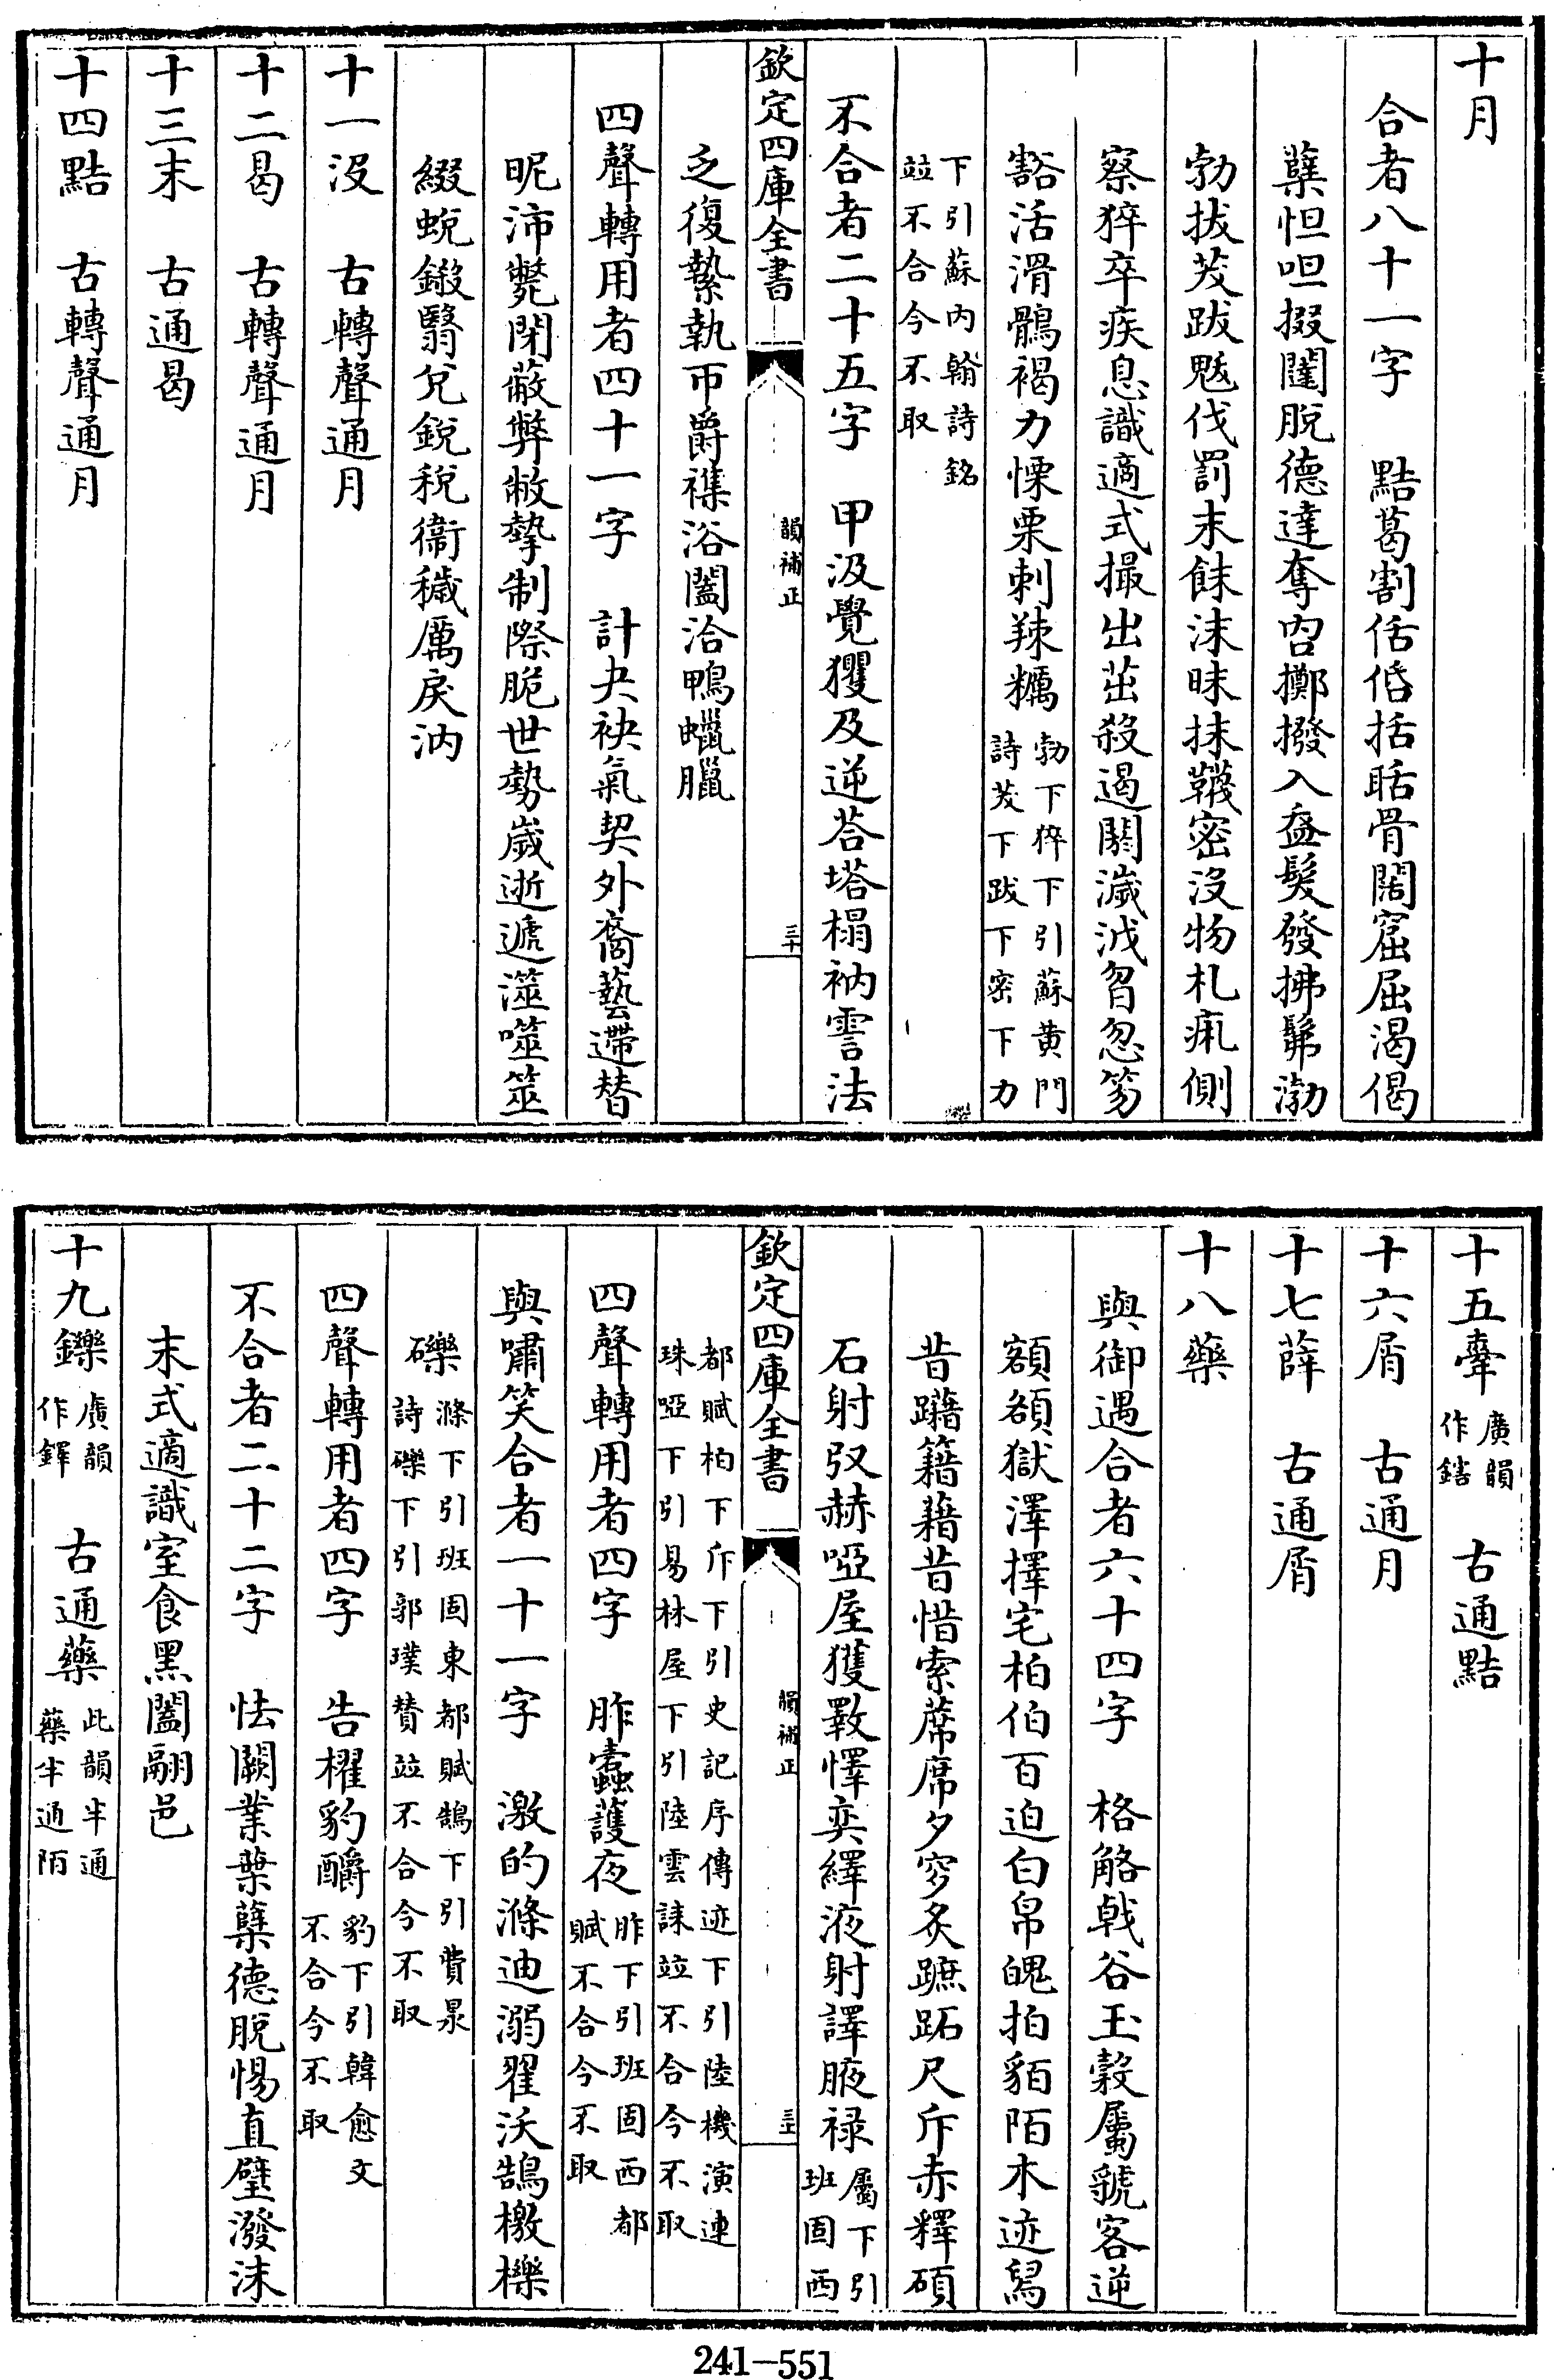 十月
合者八十一字　黠葛割佸佸括聒骨闊窟屈渴偈
蘖怛呾掇闥脫德達奪㕯擲撥入盋髮發拂髴渤
勃拔茇跋魃伐罰末餗沫昧抹韈密沒物札㾏側
察猝卒疾息識適式撮出茁殺遏閼濊泧曶忽笏
豁活滑鶻褐力慄栗刺辣糲勃下猝下引蘇黃門詩茇下跋下密下力
下引蘇內翰詩銘竝不合今不取
不合者二十五字　甲汲覺玃及逆荅塔榻衲霅法
欽定四庫全書
韻補正
三十
乏復縶執帀爵襍浴闔洽鴨蠟臘
四聲轉用者四十一字　計夬袂氣契外裔藝遰替
昵沛甈閉蔽弊敝摯制際脆世勢歲逝遞澨噬筮
綴蛻鎩翳兌銳稅衞穢厲戾汭
十一沒　古轉聲通月
十二曷　古轉聲通月
十三末　古通曷
十四黠　古轉聲通月
十五舝廣韻作鎋　古通黠
十六屑　古通月
十七薛　古通屑
十八藥
與御遇合者六十四字　格觡戟谷玉穀屬虢客逆
額頟獄澤擇宅柏伯百迫白帛魄拍貊陌木迹舄
昔躤籍藉昔惜索蓆席夕穸炙蹠跖尺斥赤釋碩
石射㕛赫啞屋獲斁懌奕繹液射譯腋祿屬下引班固西
欽定四庫全書
韻補正
三十一
都賦柏下斥下引史記序傳迹下引陸機演連珠啞下引易林屋下引陸雲誄竝不合今不取
四聲轉用者四字　胙蠹護夜胙下引班固西都賦不合今不取
與嘯笑合者一十一字　激的滌迪溺翟沃鵠檄櫟
礫滌下引班固東都賦鵠下引費㫤詩礫下引郭璞贊竝不合今不取
四聲轉用者四字　告櫂豹釂豹下引韓愈文不合今不取
不合者二十二字　怯闕業葉蘖德脫惕直壁潑沫
末式適識室食黑闔翮邑
十九鑠廣韻作鐸　古通藥此韻半通藥半通陌
241—551